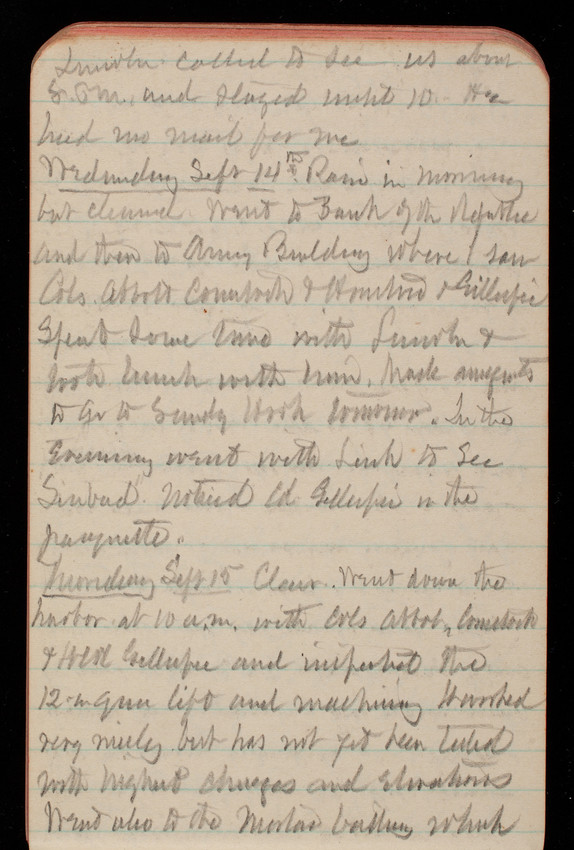 Lincoln called to see us about
8. P.m. and stayed until 10. He
had no mail for me
Wednesday Sept 14th. Rain in morning
but cleared. Went to Bank of the Republic
and then to Army Building where I saw
Cols. Abbott Comstock & & Gillespie
Spent some time with Lincoln &
took lunch with him. Made
to go to Sandy Hook tomorrow. In the
Evening went with Link to see
Sinbad. Noticed Col Gillespie in the
parquette.
Thursday Sept 15 Clear. Went down the
harbor at 10 a.m. with Cols Abbot, Comstock
& Gillespie and inspected the
12-in gun lift and machinery. Worked
very nicely but has not yet been tested
with highest charges and elevations
Went also to the Mortar battery which